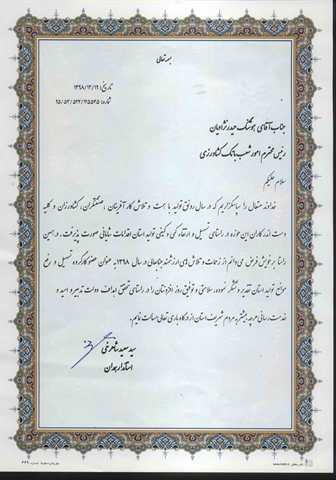 بسمه تعالی
تاریخ: ۱۳۹۸/۱۲/۱۹
شماره: ۱۵/۵۲/۵۲۲/۲۵۵۴۵
جناب آقای هوشنگ حیدرنژادیان
رئیس محترم امور شعب بانک کشاورزی
سلام علیکم
خداوند متعال را سپاسگزاریم که در سال رونق تولید با همت و تلاش کارآفرینان، صنعتگران، کشاورزان و کلیه
دست اندرکاران این حوزه در راستای تسهیل و ارتقاء کمی و کیفی تولید استان اقدامات شایانی صورت پذیرفت. در همین
راستا بر خویش فرض می‌دانم از زحمات و تلاش‌های ارزشمند جنابعالی در سال ۱۳۹۸ به عنوان عضو کارگروه تسهیل و رفع
موانع تولید استان تقدیر و تشکر نموده، سلامتی و توفیق روز افزونتان را در راستای تحقق اهداف دولت تدبیر و امید و
خدمت رسانی هرچه بیشتر به مردم شریف استان از درگاه باری تعالی مسالت نمایم.
سید سعید شاهرخی
استاندار همدان